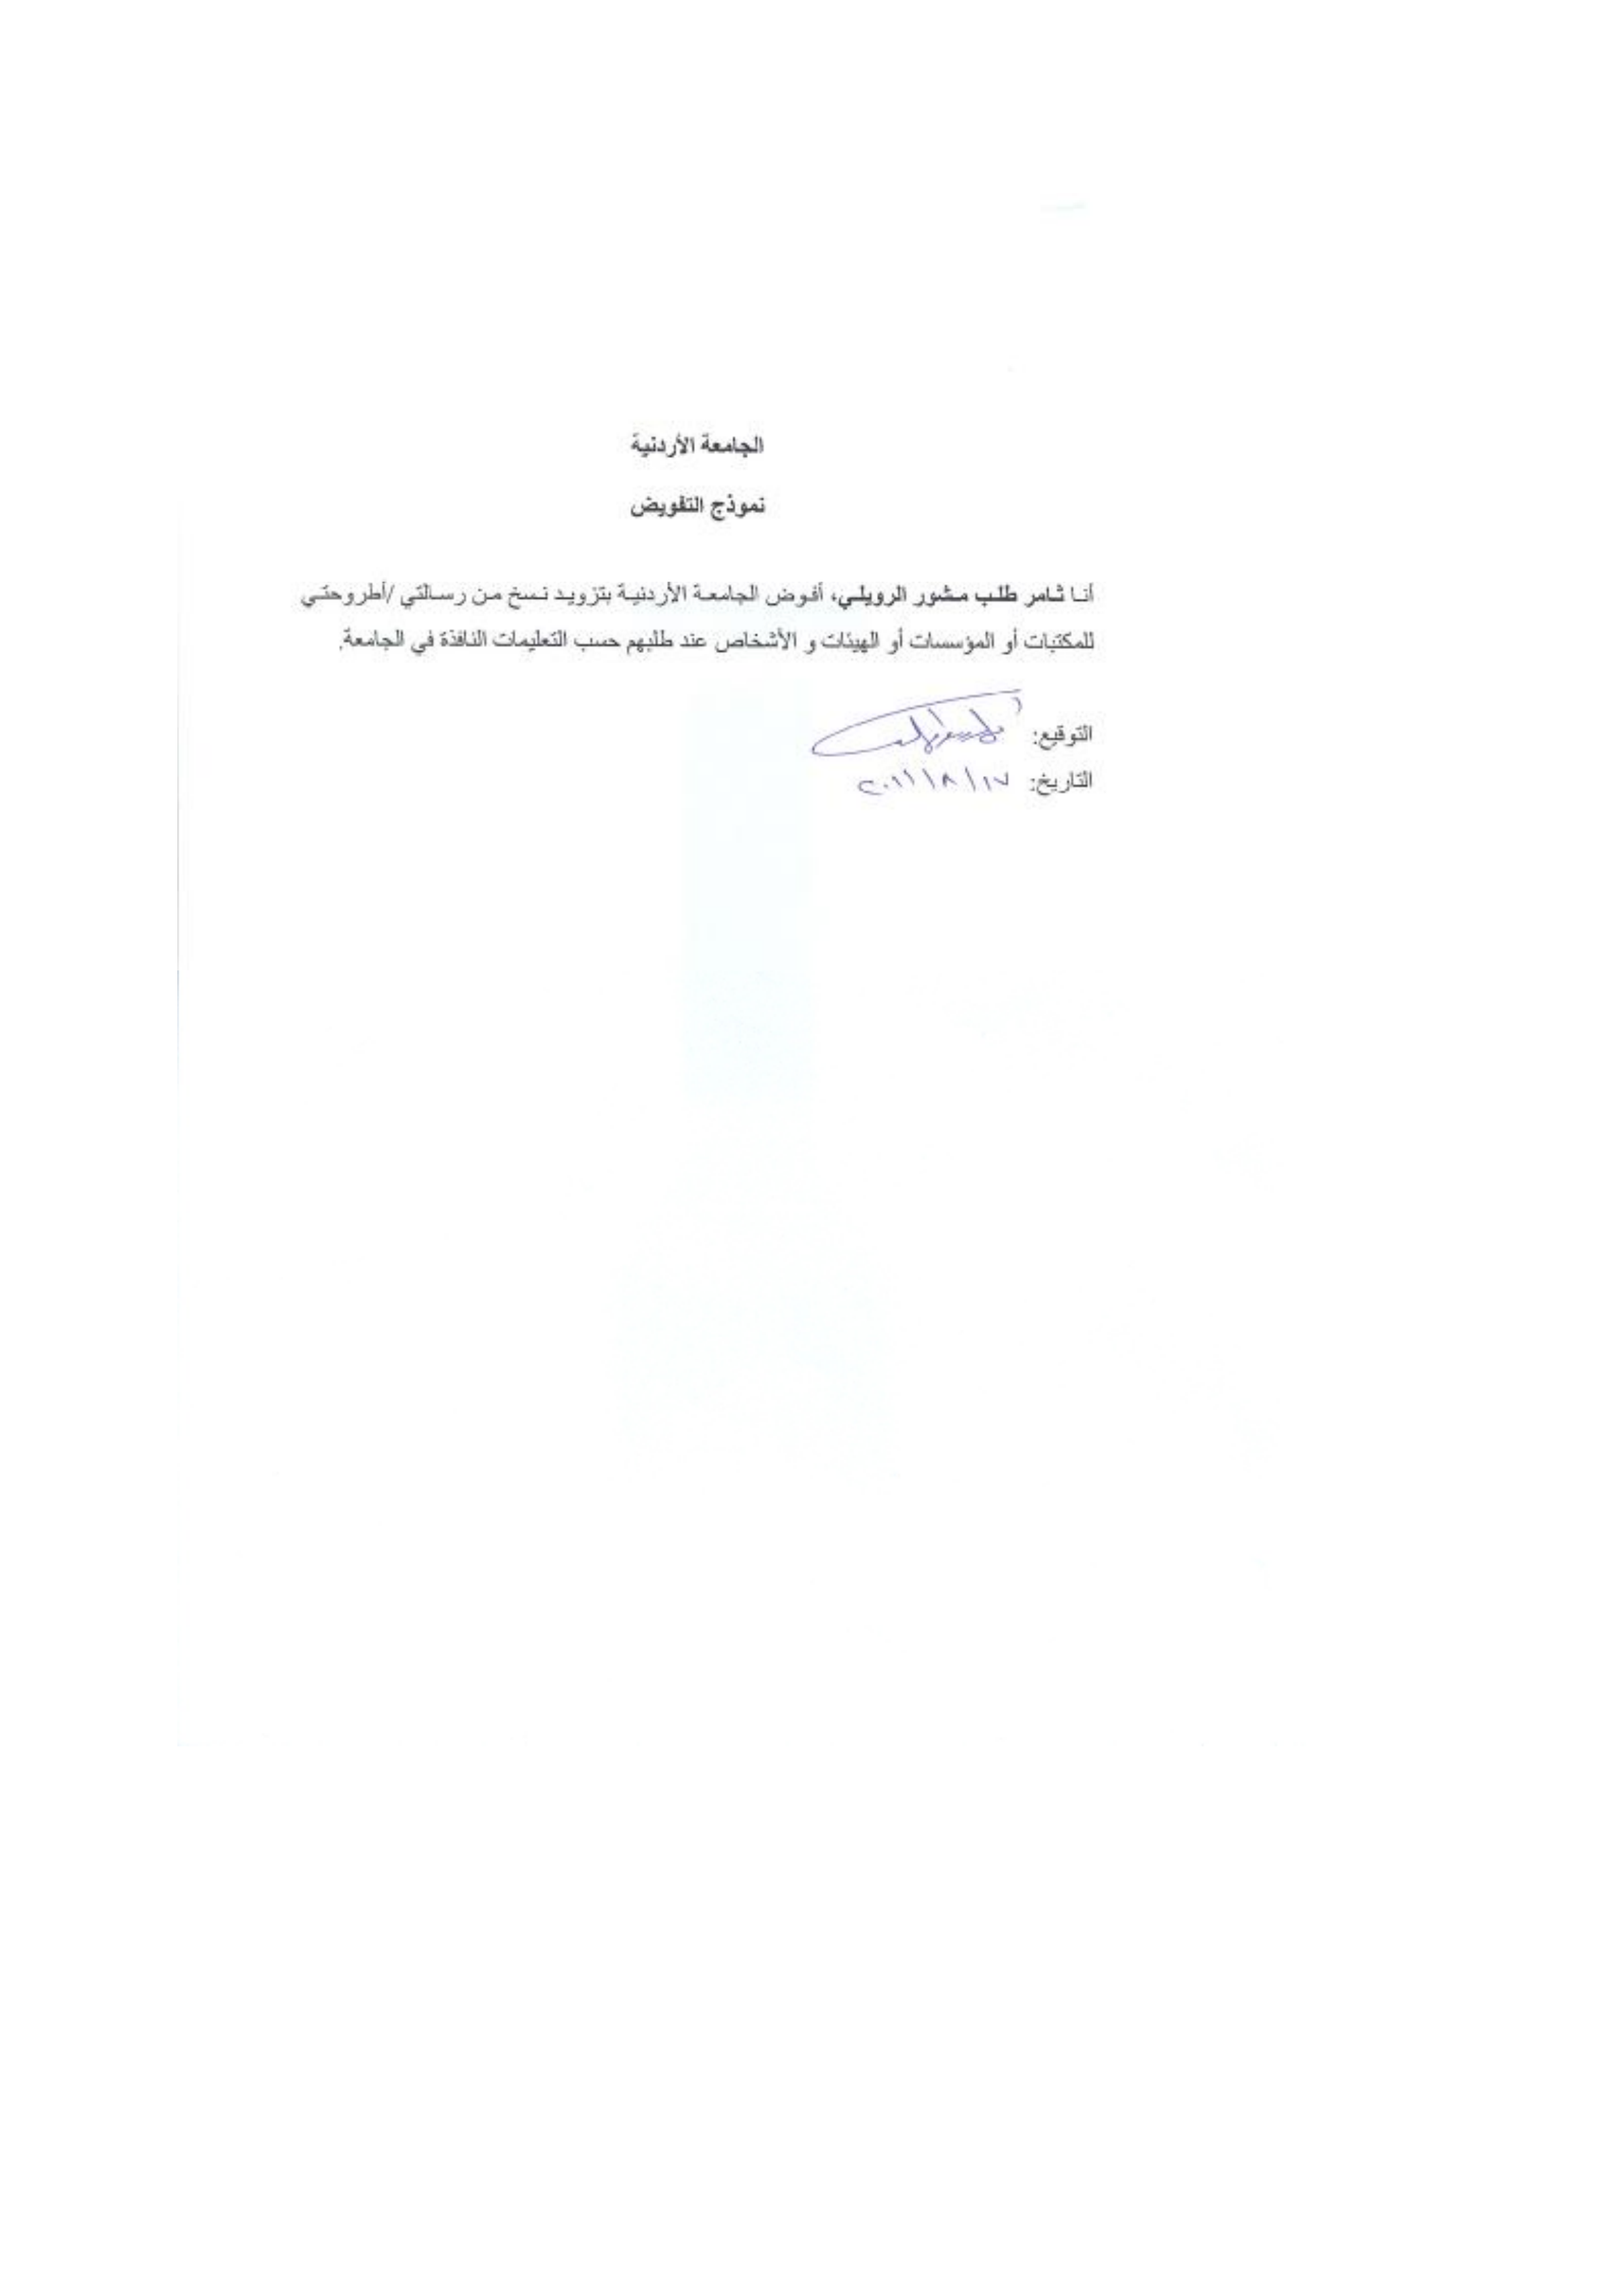 الجامعة الأردنية
نموذج التفويض
أنا ثامر طلب مشور الرويلي، أفوض الجامعة الأردنية بتزويد نسخ من رسالتي /أطروحتي
للمكتبات أو المؤسسات أو الهيئات و الأشخاص عند طلبهم حسب التعليمات النافذة في الجامعة.
التوقيع:
التاريخ: ٢٠١١/٨/١٧